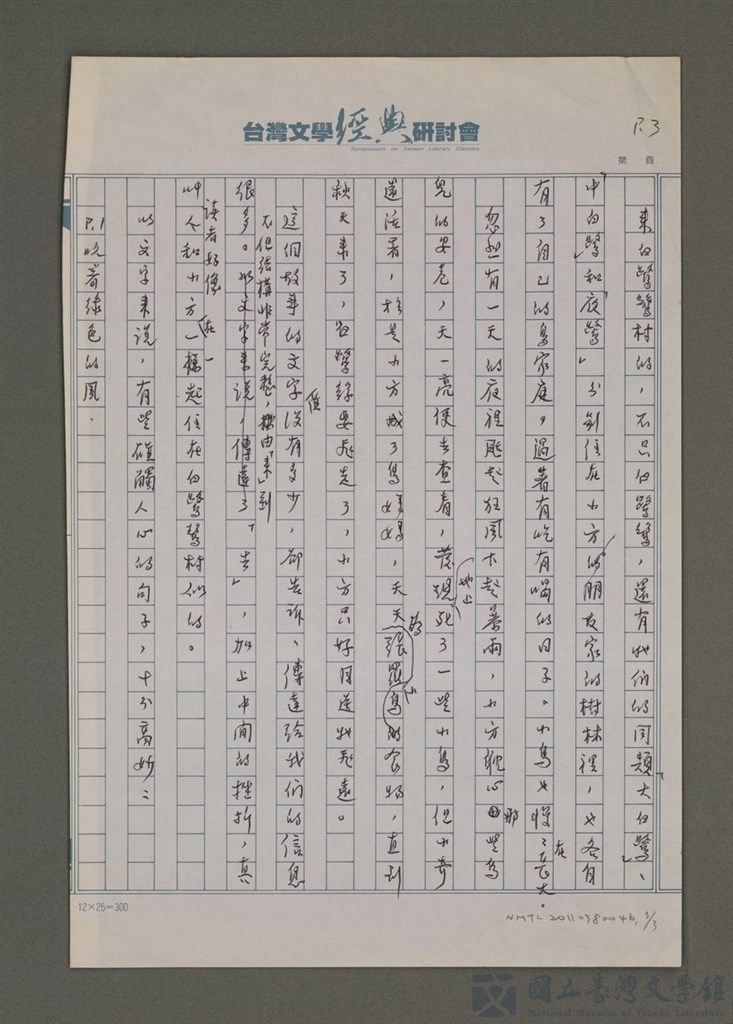 台灣文學經典研討會
Symposium on Taiwan Literary Classics
P.3
第 頁
來白鷺鷥村的，不只白鷺鷥，還有牠們的同類「大白鷺」、
「中白鷺」和「夜鷺」，分別住在小方的朋友家的樹林裡，也各自
有了自己的鳥家庭。過著有吃有喝的日子。小鳥也慢慢在長大。
忽然有一天的夜裡颳起狂風下起暴雨，小方耽心那些鳥
兒的安危，天一亮便去查看，發現地上死了一些小鳥，但小奇
還活著，於是小方成了鳥媽媽，天天張羅小鳥的食物，直到
秋天來了，白鷺鷥要飛走了，小方只好目送牠飛遠。
這個故事的文字沒有多少，卻告訴、傳達給我們的信息
很多。不但結構非常完整，由「來」到
「去」，加上中間的挫折，真
叫人和小方一樣
讀者好像在一起住在白鷺鷥村似的。
以文字來說，有些碰觸人心的句子，十分高妙：
P.1 吹著綠色的風.
12×25=300
NMTL 20110380046, 3/3
國立臺灣文學館
National Museum of Taiwan Literature